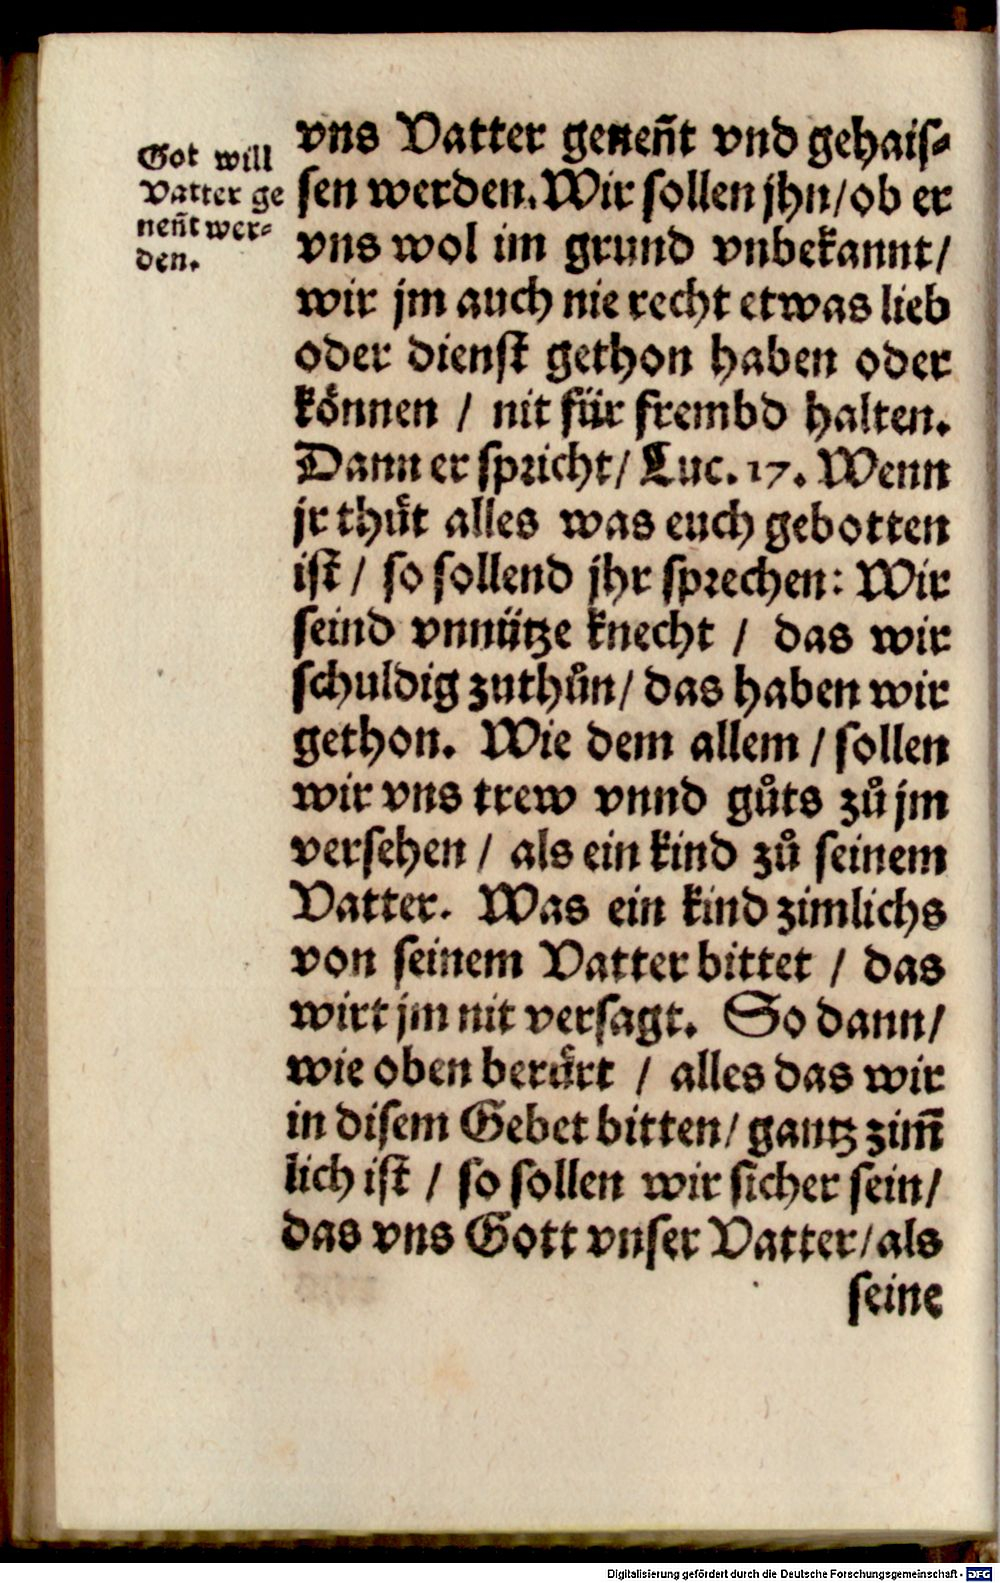 Got will
Vatter ge
neñt wer⸗
den.
vns Vatter geneñt vnd gehaiſ⸗
ſen werden. Wir ſollen jhn / ob er
vns wol im grund vnbekannt /
wir jm auch nie recht etwas lieb
oder dienſt gethon haben oder
können / nit für frembd halten.
Dann er ſpricht / Luc. 17. Wenn
jr thůt alles was euch gebotten
iſt / ſo ſollend jhr ſprechen: Wir
ſeind vnnütze knecht / das wir
ſchuldig zuthůn / das haben wir
gethon. Wie dem allem / ſollen
wir vns trew vnnd gůts zů jm
verſehen / als ein kind zů ſeinem
Vatter. Was ein kind zimlichs
von ſeinem Vatter bittet / das
wirt jm nit verſagt. So dann /
wie oben berůrt / alles das wir
in diſem Gebet bitten / gantz zim̃
lich iſt / ſo ſollen wir ſicher ſein /
das vns Gott vnſer Vatter / als
ſeine
Digitalisierung gefördert durch die Deutsche Forschungsgemeinschaft - DFG